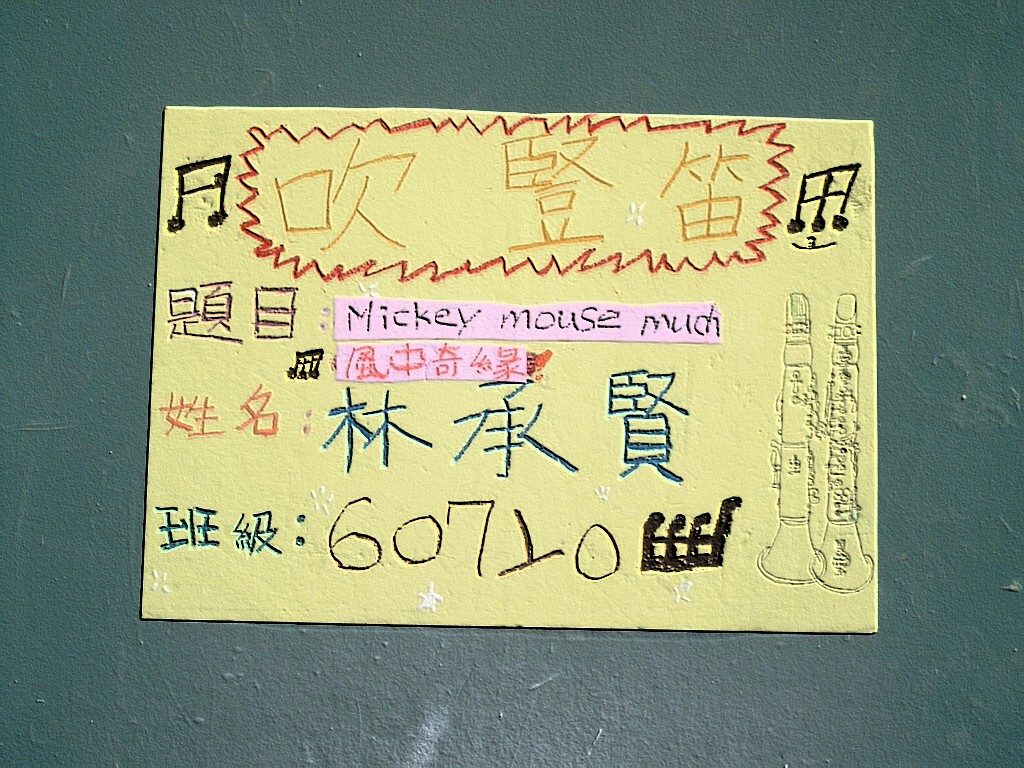 吹豎笛
題目:Mickey mouse much
風中奇緣
姓名:林承賢
班級:60710